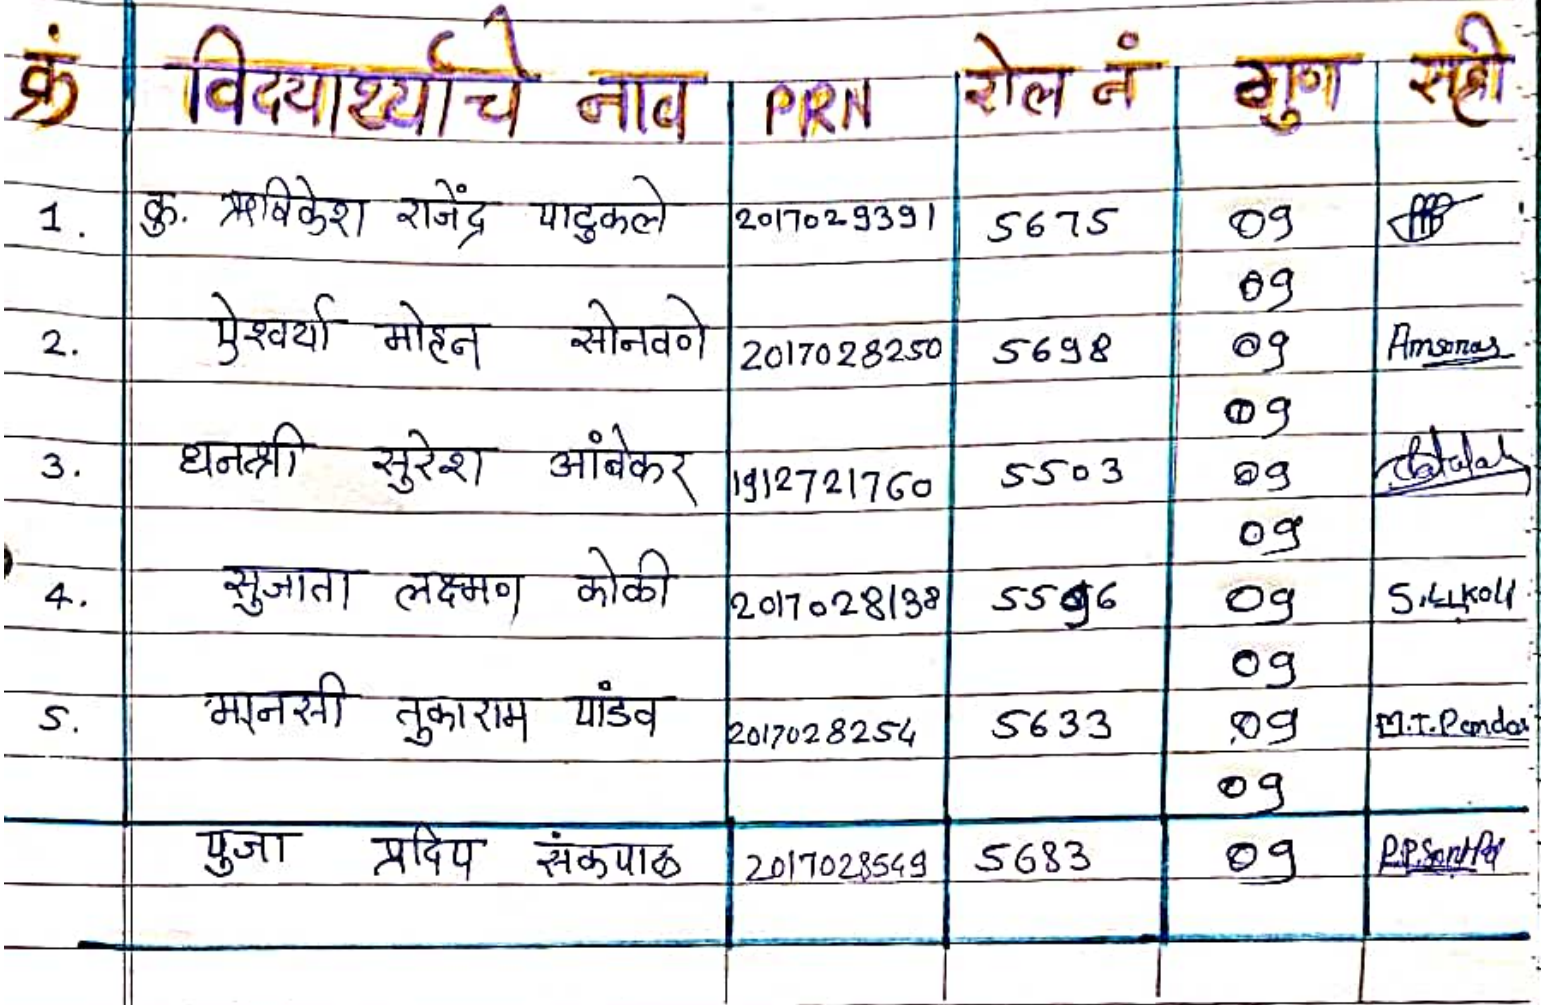 क्रं विद्यार्थ्याचे नाव PRN रोल नं गुण सही
1. कु. ऋषिकेश राजेंद्र पाटुकले 2017029391 5675 09
09
2. ऐश्वर्या मोहन सोनवणे 2017028250 5698 09 Amsonas
09
3. धनश्री सुरेश आंबेकर 1912721760 5503 09
09
4. सुजाता लक्ष्मण कोकी 2017028138 5596 09 S.L.Koli
09
5. मानसी तुकाराम पांडव 2017028254 5633 09 M.T.Pandav
09
पुजा प्रदिप संकपाळ 2017028549 5683 09